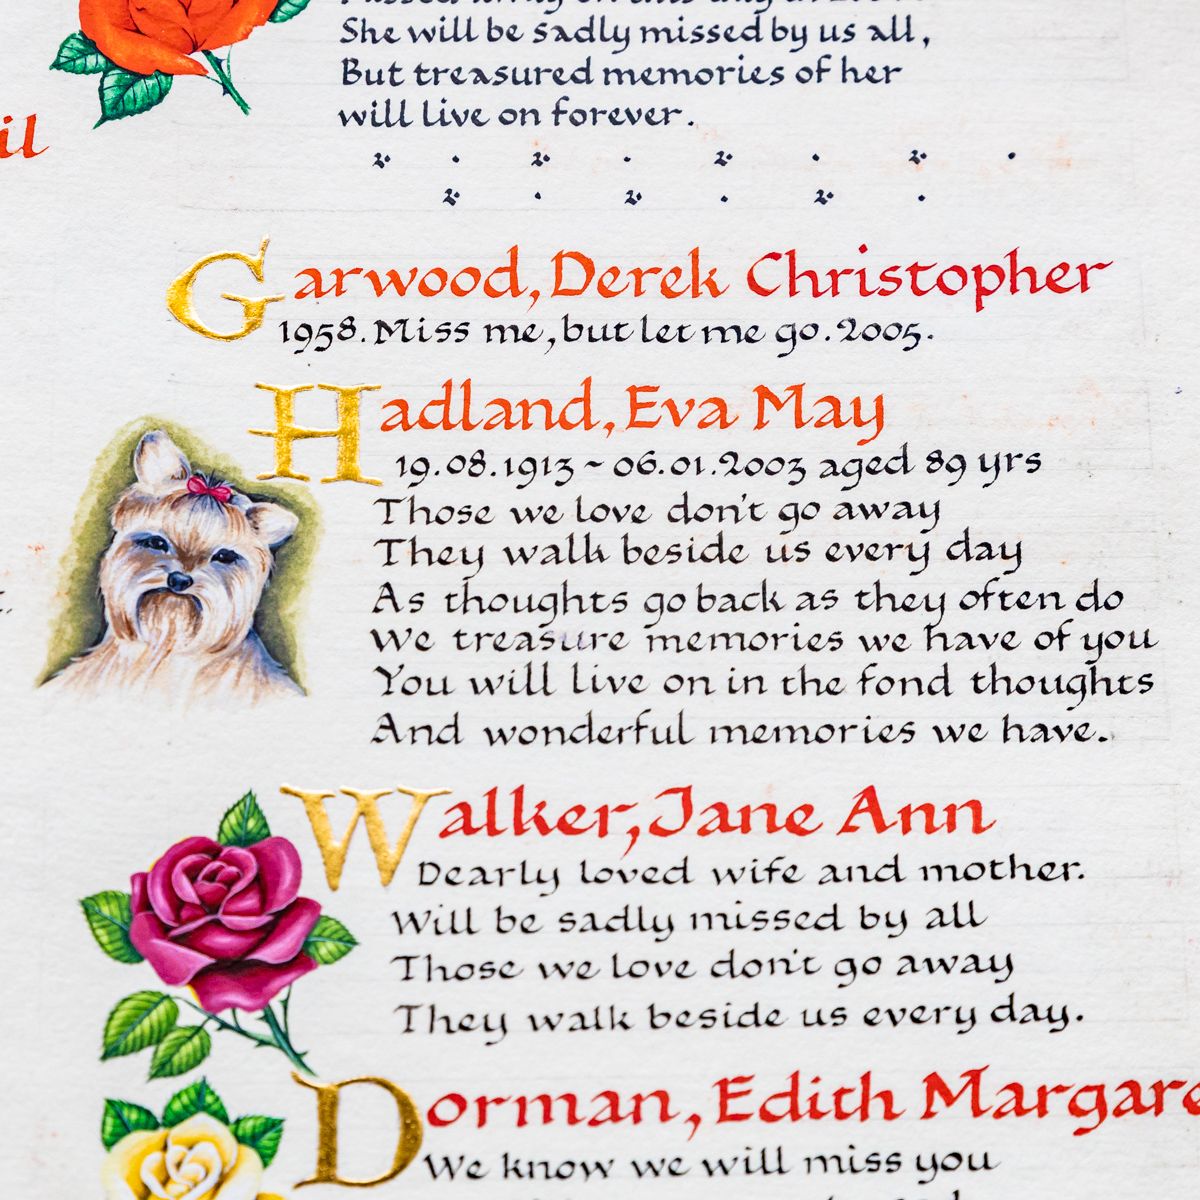 She will be sadly missed by us all,
But treasured memories of her
will live on forever.
il
Garwood, Derek Christopher
1958. Miss me, but let me go. 2005.
Hadland, Eva May
19.08.1913 ~ 06.01.2003 aged 89 yrs
Those we love don't go away
They walk beside us every day
As thoughts go back as they often do
We treasure memories we have of you
You will live on in the fond thoughts
And wonderful memories we have.
Walker, Jane Ann
Dearly loved wife and mother.
Will be sadly missed by all
Those we love don't go away
They walk beside us every day.
Dorman, Edith Margare
We know we will miss you